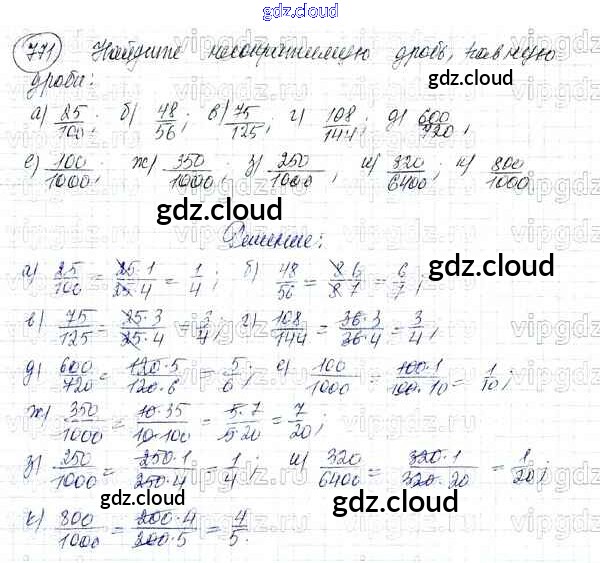 gdz.cloud
771) Найдите несократимую дробь, равную
дроби:
gdz.cloud
а) 25/100; б) 48/56; в) 75/125; г) 108/144; д) 600/720;
е) 100/1000; ж) 350/1000; з) 250/1000; и) 320/6400; к) 800/1000
gdz.cloud
gdz.cloud
Решение:
а) 25/100 = 25·1/25·4 = 1/4; б) 48/56 = 8·6/8·7 = 6/7;
gdz.cloud
в) 75/125 = 25·3/25·4 = 3/4; г) 108/144 = 36·3/36·4 = 3/4;
д) 600/720 = 120·5/120·6 = 5/6; е) 100/1000 = 100·1/100·10 = 1/10;
ж) 350/1000 = 10·35/10·100 = 5·7/5·20 = 7/20;
з) 250/1000 = 250·1/250·4 = 1/4; и) 320/6400 = 320·1/320·20 = 1/20;
gdz.cloud
gdz.cloud
к) 800/1000 = 200·4/200·5 = 4/5.